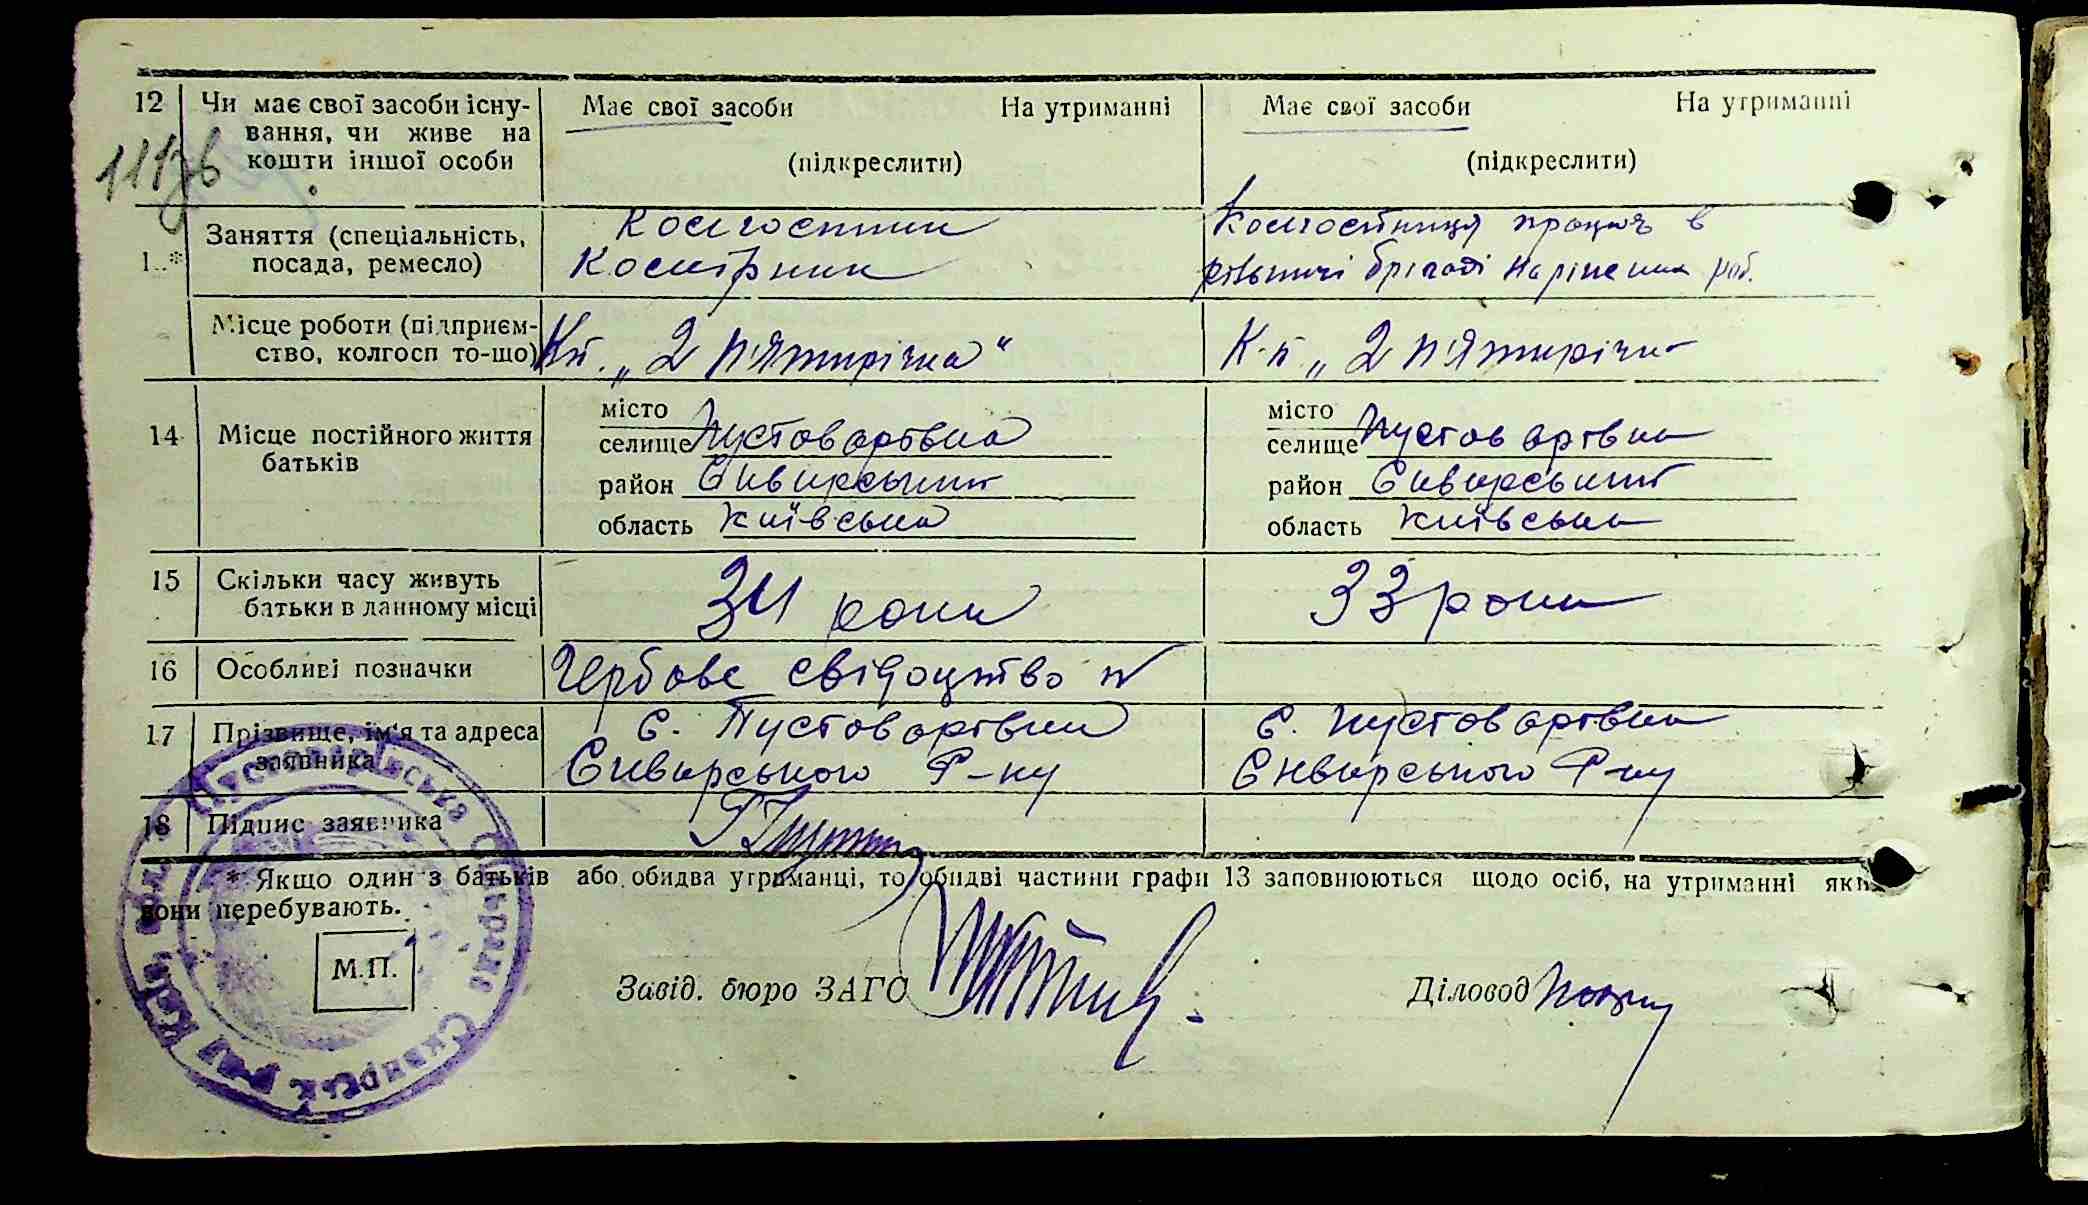 12 Чи має свої засоби існу- Має свої засоби На утриманні Має свої засоби На утриманні
вання, чи живе на
кошти іншої особи (підкреслити) (підкреслити)
111зв
Заняття (спеціальність, Колгоспник Колгоспниця працює в
1..* посада, ремесло) рільничі бригаді на різних роб.
Місце роботи (підприєм-
ство, колгосп то-що) К-п. „2 п'ятирічка“ К-п „2 п'ятирічка
місто місто
14 Місце постійного життя селище Пустоварівка селище Пустоварівка
батьків район Сквирський район Сквирський
область Київська область Київська
15 Скільки часу живуть 34 роки 33 роки
батьки в данному місці
16 Особливі позначки Гербове свідоцтво №
17 Прізвище, ім'я та адреса с. Пустоварівка с. Пустоварівка
заявника Сквирського Р-ну Сквирського Р-ну
18 Підпис заявника
* Якщо один з батьків або обидва утриманці, то обидві частини графи 13 заповнюються щодо осіб, на утриманні яких
вони перебувають.
М.П.
Завід. бюро ЗАГС Діловод
Пустоварівська Сільрада Сквирськ. р-на Київ. обл.